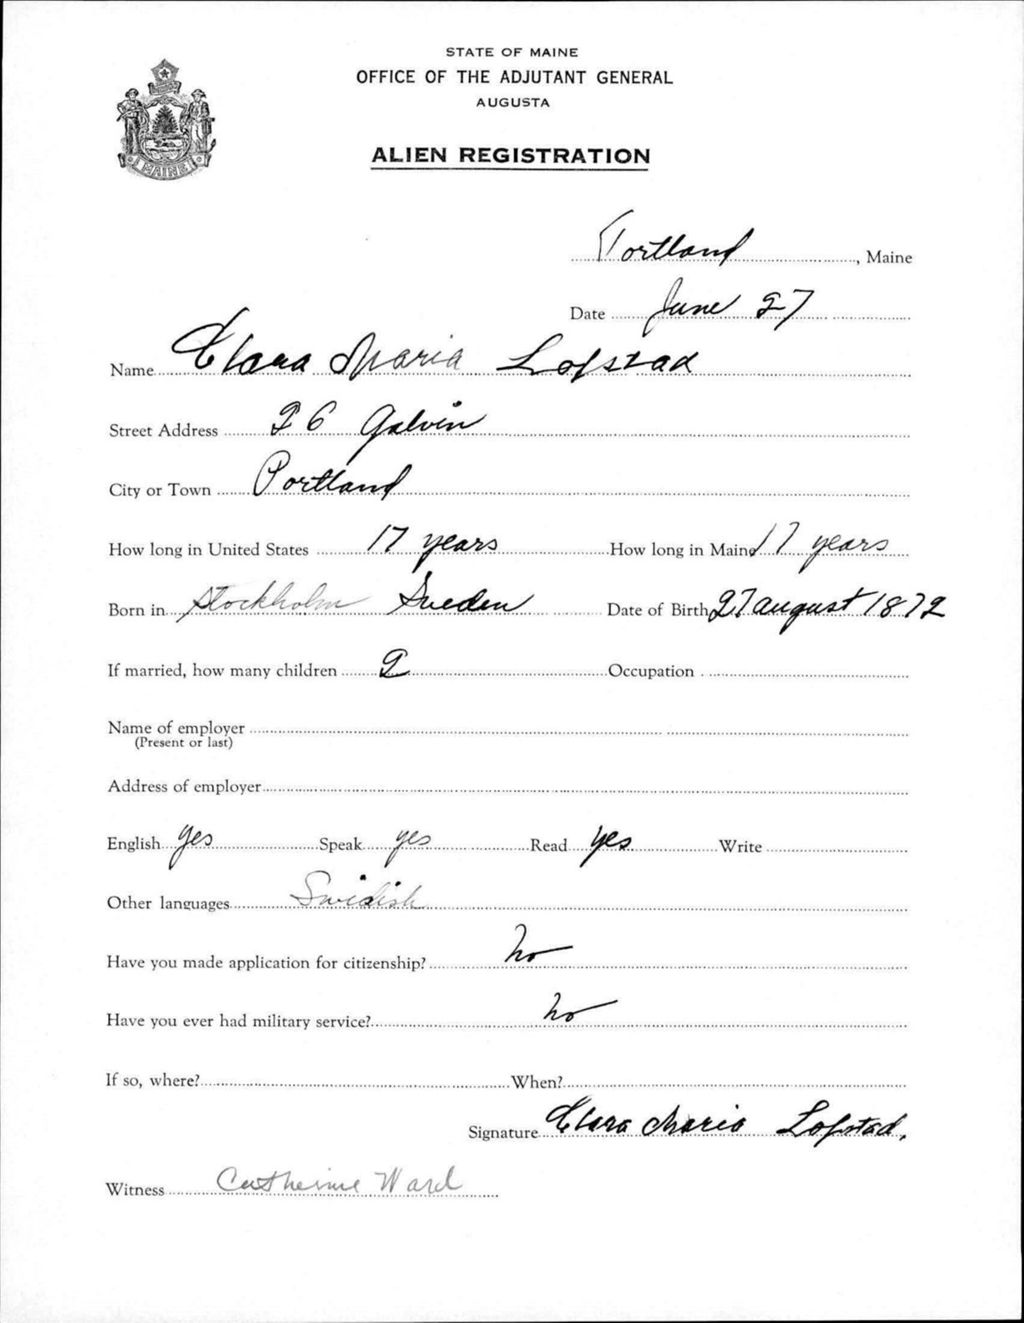 STATE OF MAINE
OFFICE OF THE ADJUTANT GENERAL
AUGUSTA
ALIEN REGISTRATION
MAINE
Portland, Maine
Date June 27
Name Clara Maria Lofstad
Street Address 26 Galvin
City or Town Portland
How long in United States 17 years How long in Maine 17 years
Born in Stockholm Sweden Date of Birth 27 august 1872
If married, how many children 2 Occupation
Name of employer
(Present or last)
Address of employer
English yes Speak yes Read yes Write
Other languages Swidish
Have you made application for citizenship? no
Have you ever had military service? no
If so, where? When?
Signature Clara Maria Lofstad.
Witness Catherine Ward